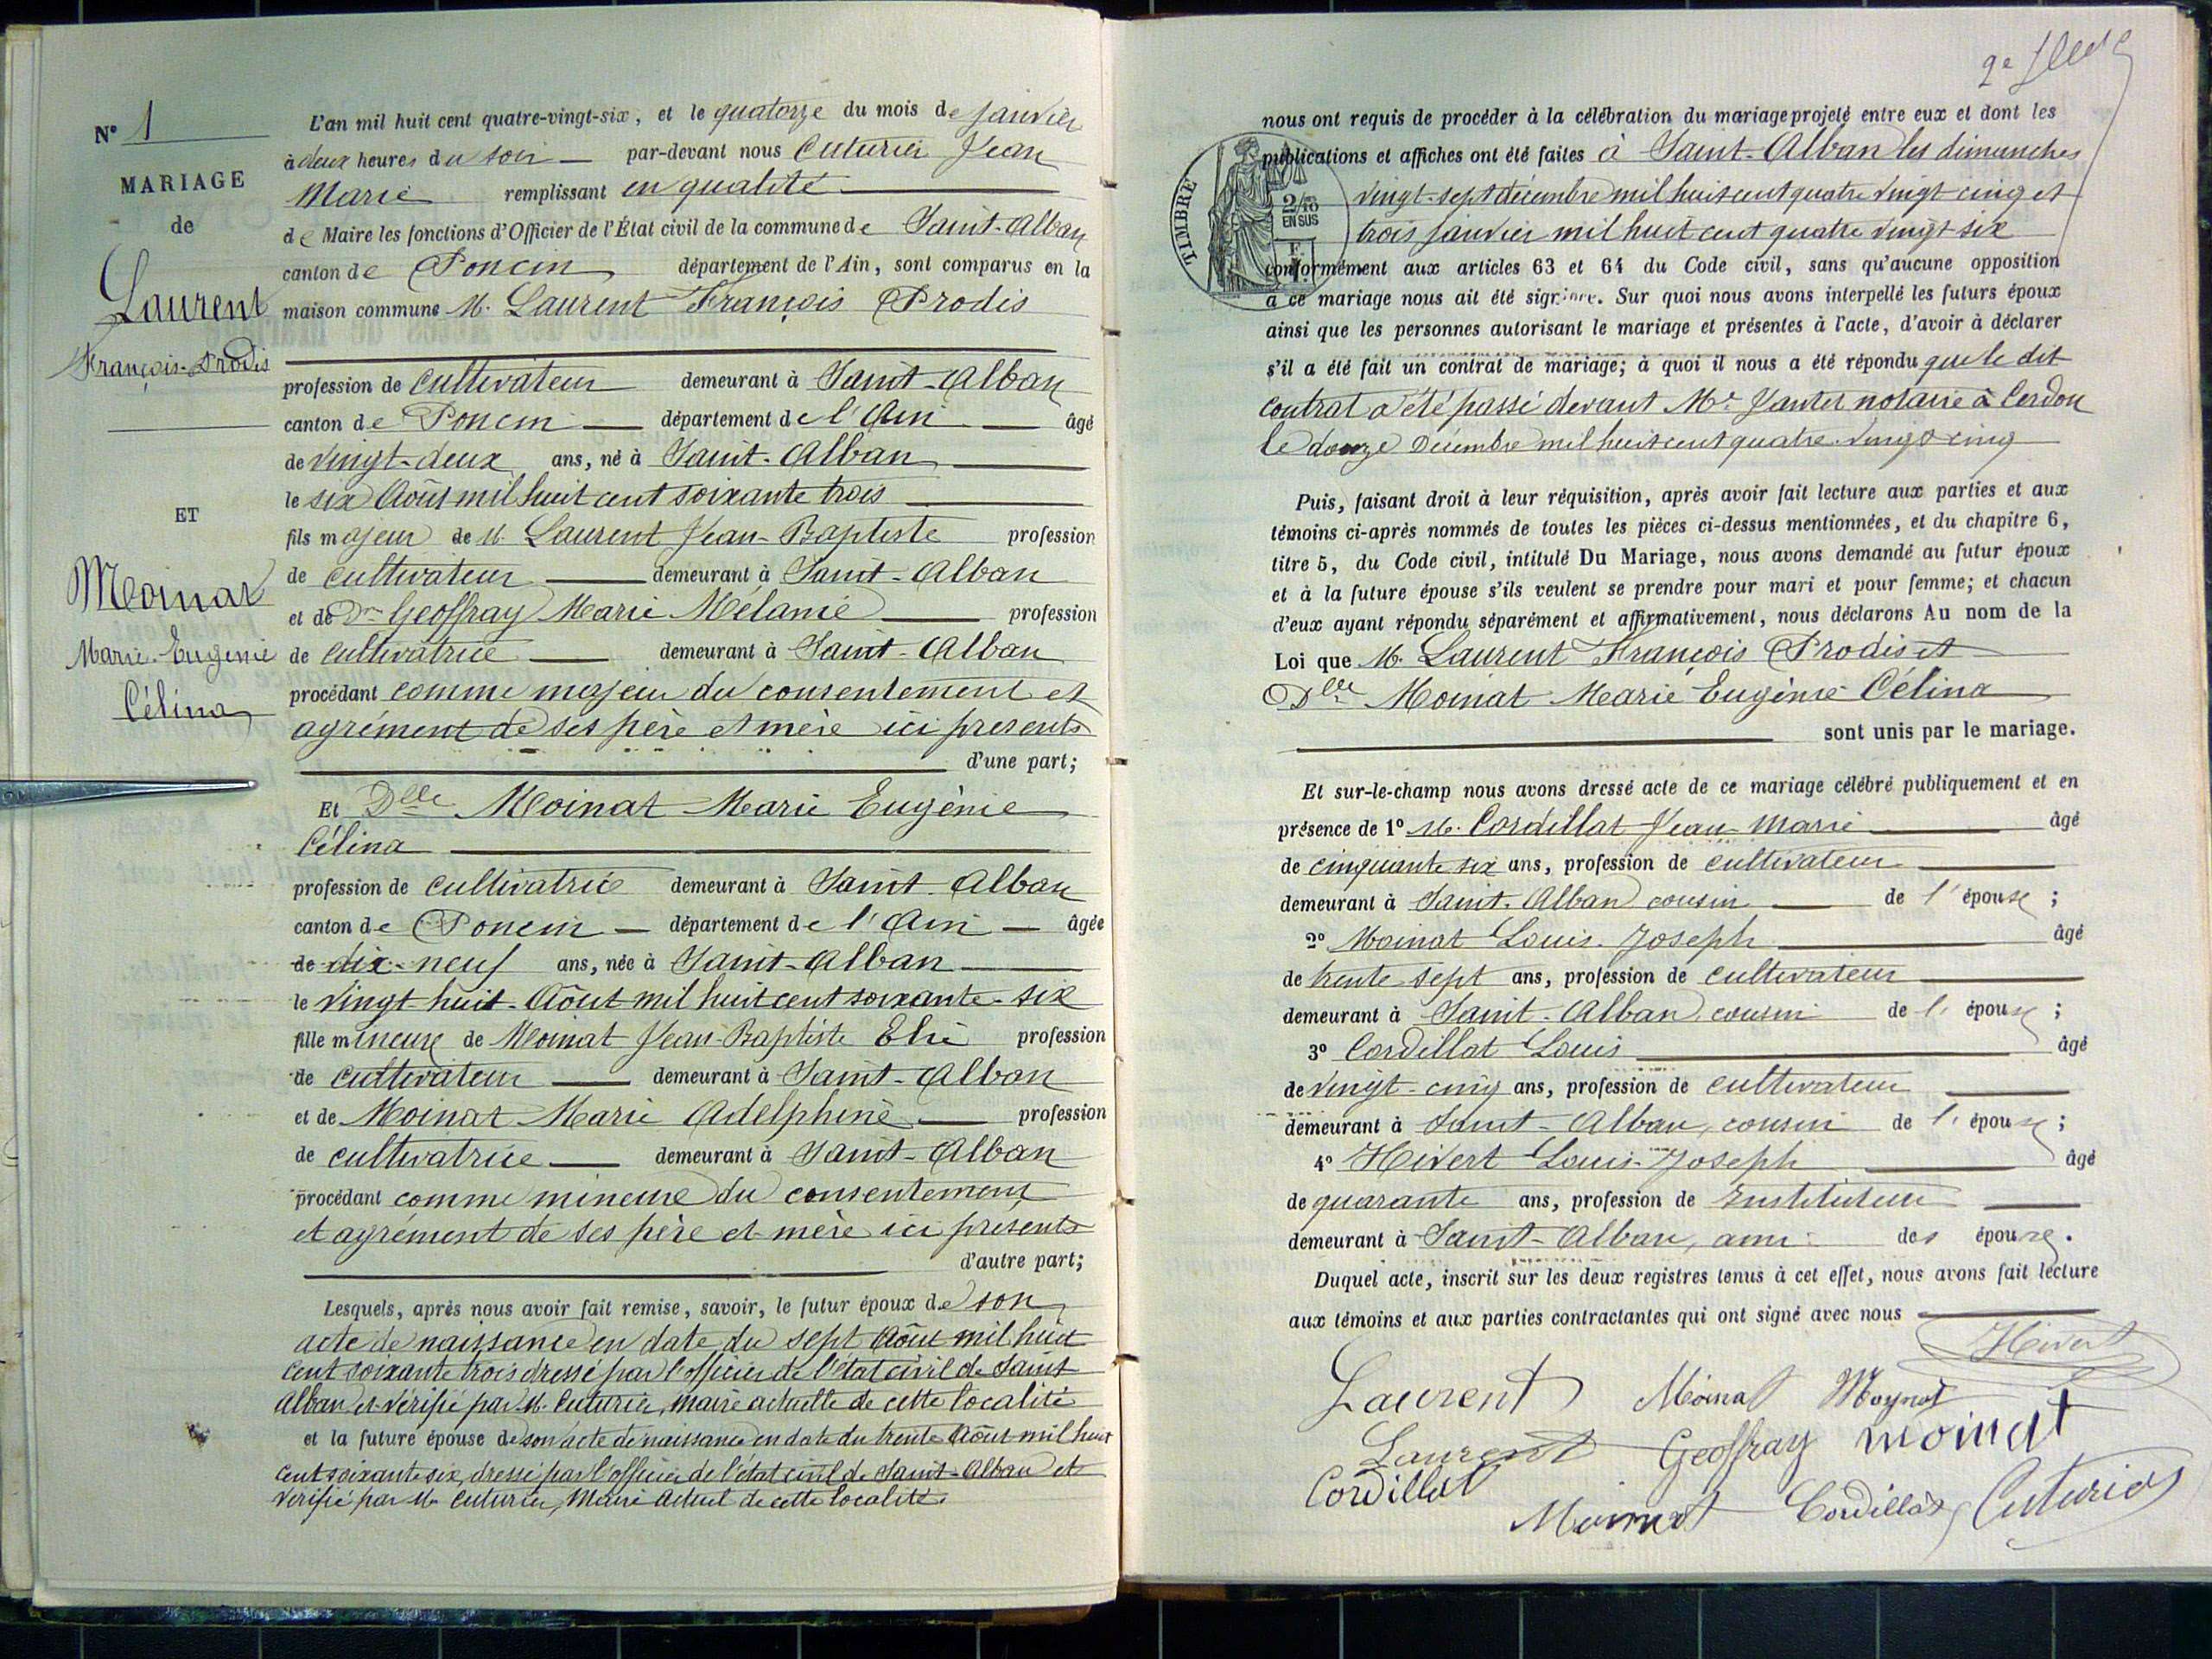 N° 1
MARIAGE
de
Laurent
François-Prodis
ET
Moinat
Marie-Eugénie
Célina
L'an mil huit cent quatre-vingt-six, et le quatorze du mois de janvier
à deux heures du soir par-devant nous Cuturier Jean
Marie remplissant en qualité
de Maire les fonctions d'Officier de l'État civil de la commune de Saint-Alban
canton de Poncin département de l'Ain, sont comparus en la
maison commune M. Laurent François Prodis
profession de cultivateur demeurant à Saint-Alban
canton de Poncin département de l'Ain âgé
de vingt-deux ans, né à Saint-Alban
le six Août mil huit cent soixante trois
fils majeur de M. Laurent Jean-Baptiste profession
de cultivateur demeurant à Saint-Alban
et de Dme Geoffray Marie Mélanie profession
de cultivatrice demeurant à Saint-Alban
procédant comme majeur du consentement et
agrément de ses père et mère ici presents
d'une part;
Et Dlle Moinat Marie Eugénie
Célina
profession de cultivatrice demeurant à Saint-Alban
canton de Poncin département de l'Ain âgée
de dix-neuf ans, née à Saint-Alban
le vingt-huit Août mil huit cent soixante-six
fille mineure de Moinat Jean-Baptiste Elie profession
de cultivateur demeurant à Saint-Alban
et de Moinat Marie Adelphine profession
de cultivatrice demeurant à Saint-Alban
procédant comme mineure du consentement
et agrément de ses père et mère ici présents
d'autre part;
Lesquels, après nous avoir fait remise, savoir, le futur époux de son
acte de naissance en date du sept Août mil huit
cent soixante trois dressé par l'officier de l'état civil de Saint
Alban et vérifié par M. Cuturier, maire actuelle de cette localité
et la future épouse de son acte de naissance en date du trente Août mil huit
cent soixante six, dressé par l'officier de l'état civil de Saint-Alban et
vérifié par M. Cuturier, Maire Actuel de cette localité.
nous ont requis de procéder à la célébration du mariage projeté entre eux et dont les
publications et affiches ont été faites à Saint-Alban les dimanches
vingt-sept décembre mil huit cent quatre vingt cinq et
trois janvier mil huit cent quatre vingt-six
TIMBRE
2/10
EN SUS
conformément aux articles 63 et 64 du Code civil, sans qu'aucune opposition
à ce mariage nous ait été signifiée. Sur quoi nous avons interpellé les futurs époux
ainsi que les personnes autorisant le mariage et présentes à l'acte, d'avoir à déclarer
s'il a été fait un contrat de mariage; à quoi il nous a été répondu que le dit
contrat a été passé devant Me notaire à Cerdon
le douze Décembre mil huit cent quatre-vingt cinq
Puis, faisant droit à leur réquisition, après avoir fait lecture aux parties et aux
témoins ci-après nommés de toutes les pièces ci-dessus mentionnées, et du chapitre 6,
titre 5, du Code civil, intitulé Du Mariage, nous avons demandé au futur époux
et à la future épouse s'ils veulent se prendre pour mari et pour femme; et chacun
d'eux ayant répondu séparément et affirmativement, nous déclarons Au nom de la
Loi que M. Laurent François Prodis et
Dlle Moinat Marie Eugénie Célina
sont unis par le mariage.
Et sur-le-champ nous avons dressé acte de ce mariage célébré publiquement et en
présence de 1° M. Cordillat Jean-Marie âgé
de cinquante six ans, profession de cultivateur
demeurant à Saint-Alban cousin de l'épouse;
2° Moinat Louis-Joseph âgé
de trente sept ans, profession de cultivateur
demeurant à Saint-Alban, cousin de l'épouse;
3° Cordillat Louis âgé
de vingt-cinq ans, profession de cultivateur
demeurant à Saint-Alban, cousin de l'épouse;
4° Hivert Louis-Joseph âgé
de quarante ans, profession de Instituteur
demeurant à Saint-Alban, ami des épouse.
Duquel acte, inscrit sur les deux registres tenus à cet effet, nous avons fait lecture
aux témoins et aux parties contractantes qui ont signé avec nous
Hivert
Laurent Moinat Moynat
Laurent Geoffray moinat
Cordillat
Moinat Cordillat Cuturier